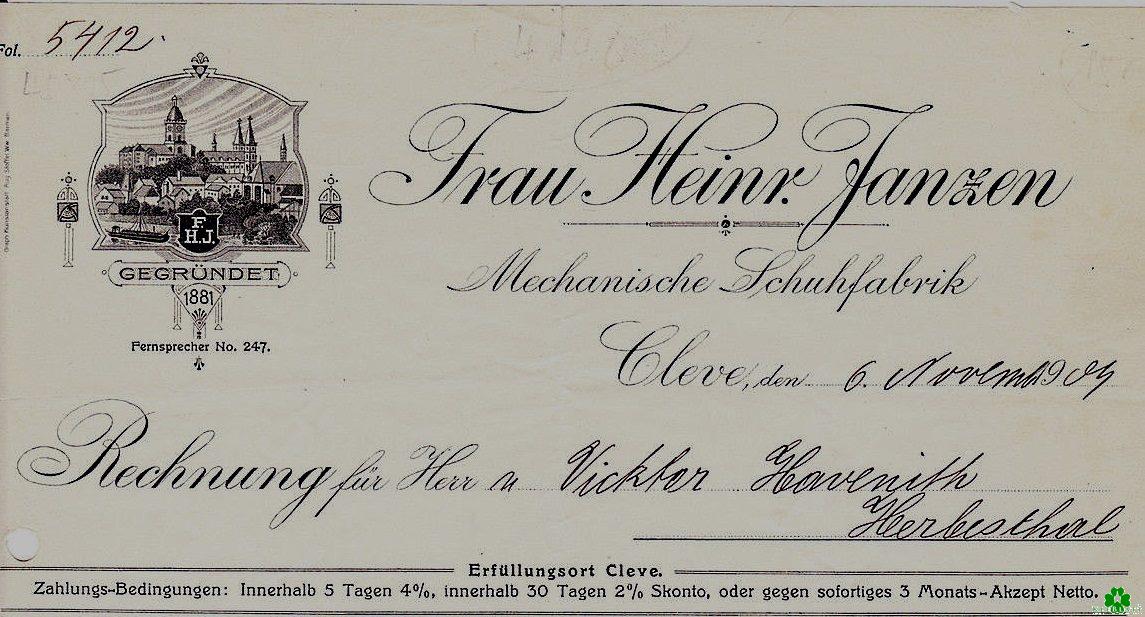 Fol. 5412.
Frau Heinr. Janzen
F.
H.J.
GEGRÜNDET
1881
Fernsprecher No. 247.
Mechanische Schuhfabrik
Cleve, den 6. Novemb 1909
Rechnung für Herrn Vicktor Havenith
Herbesthal
Erfüllungsort Cleve.
Zahlungs-Bedingungen: Innerhalb 5 Tagen 4%, innerhalb 30 Tagen 2% Skonto, oder gegen sofortiges 3 Monats-Akzept Netto.